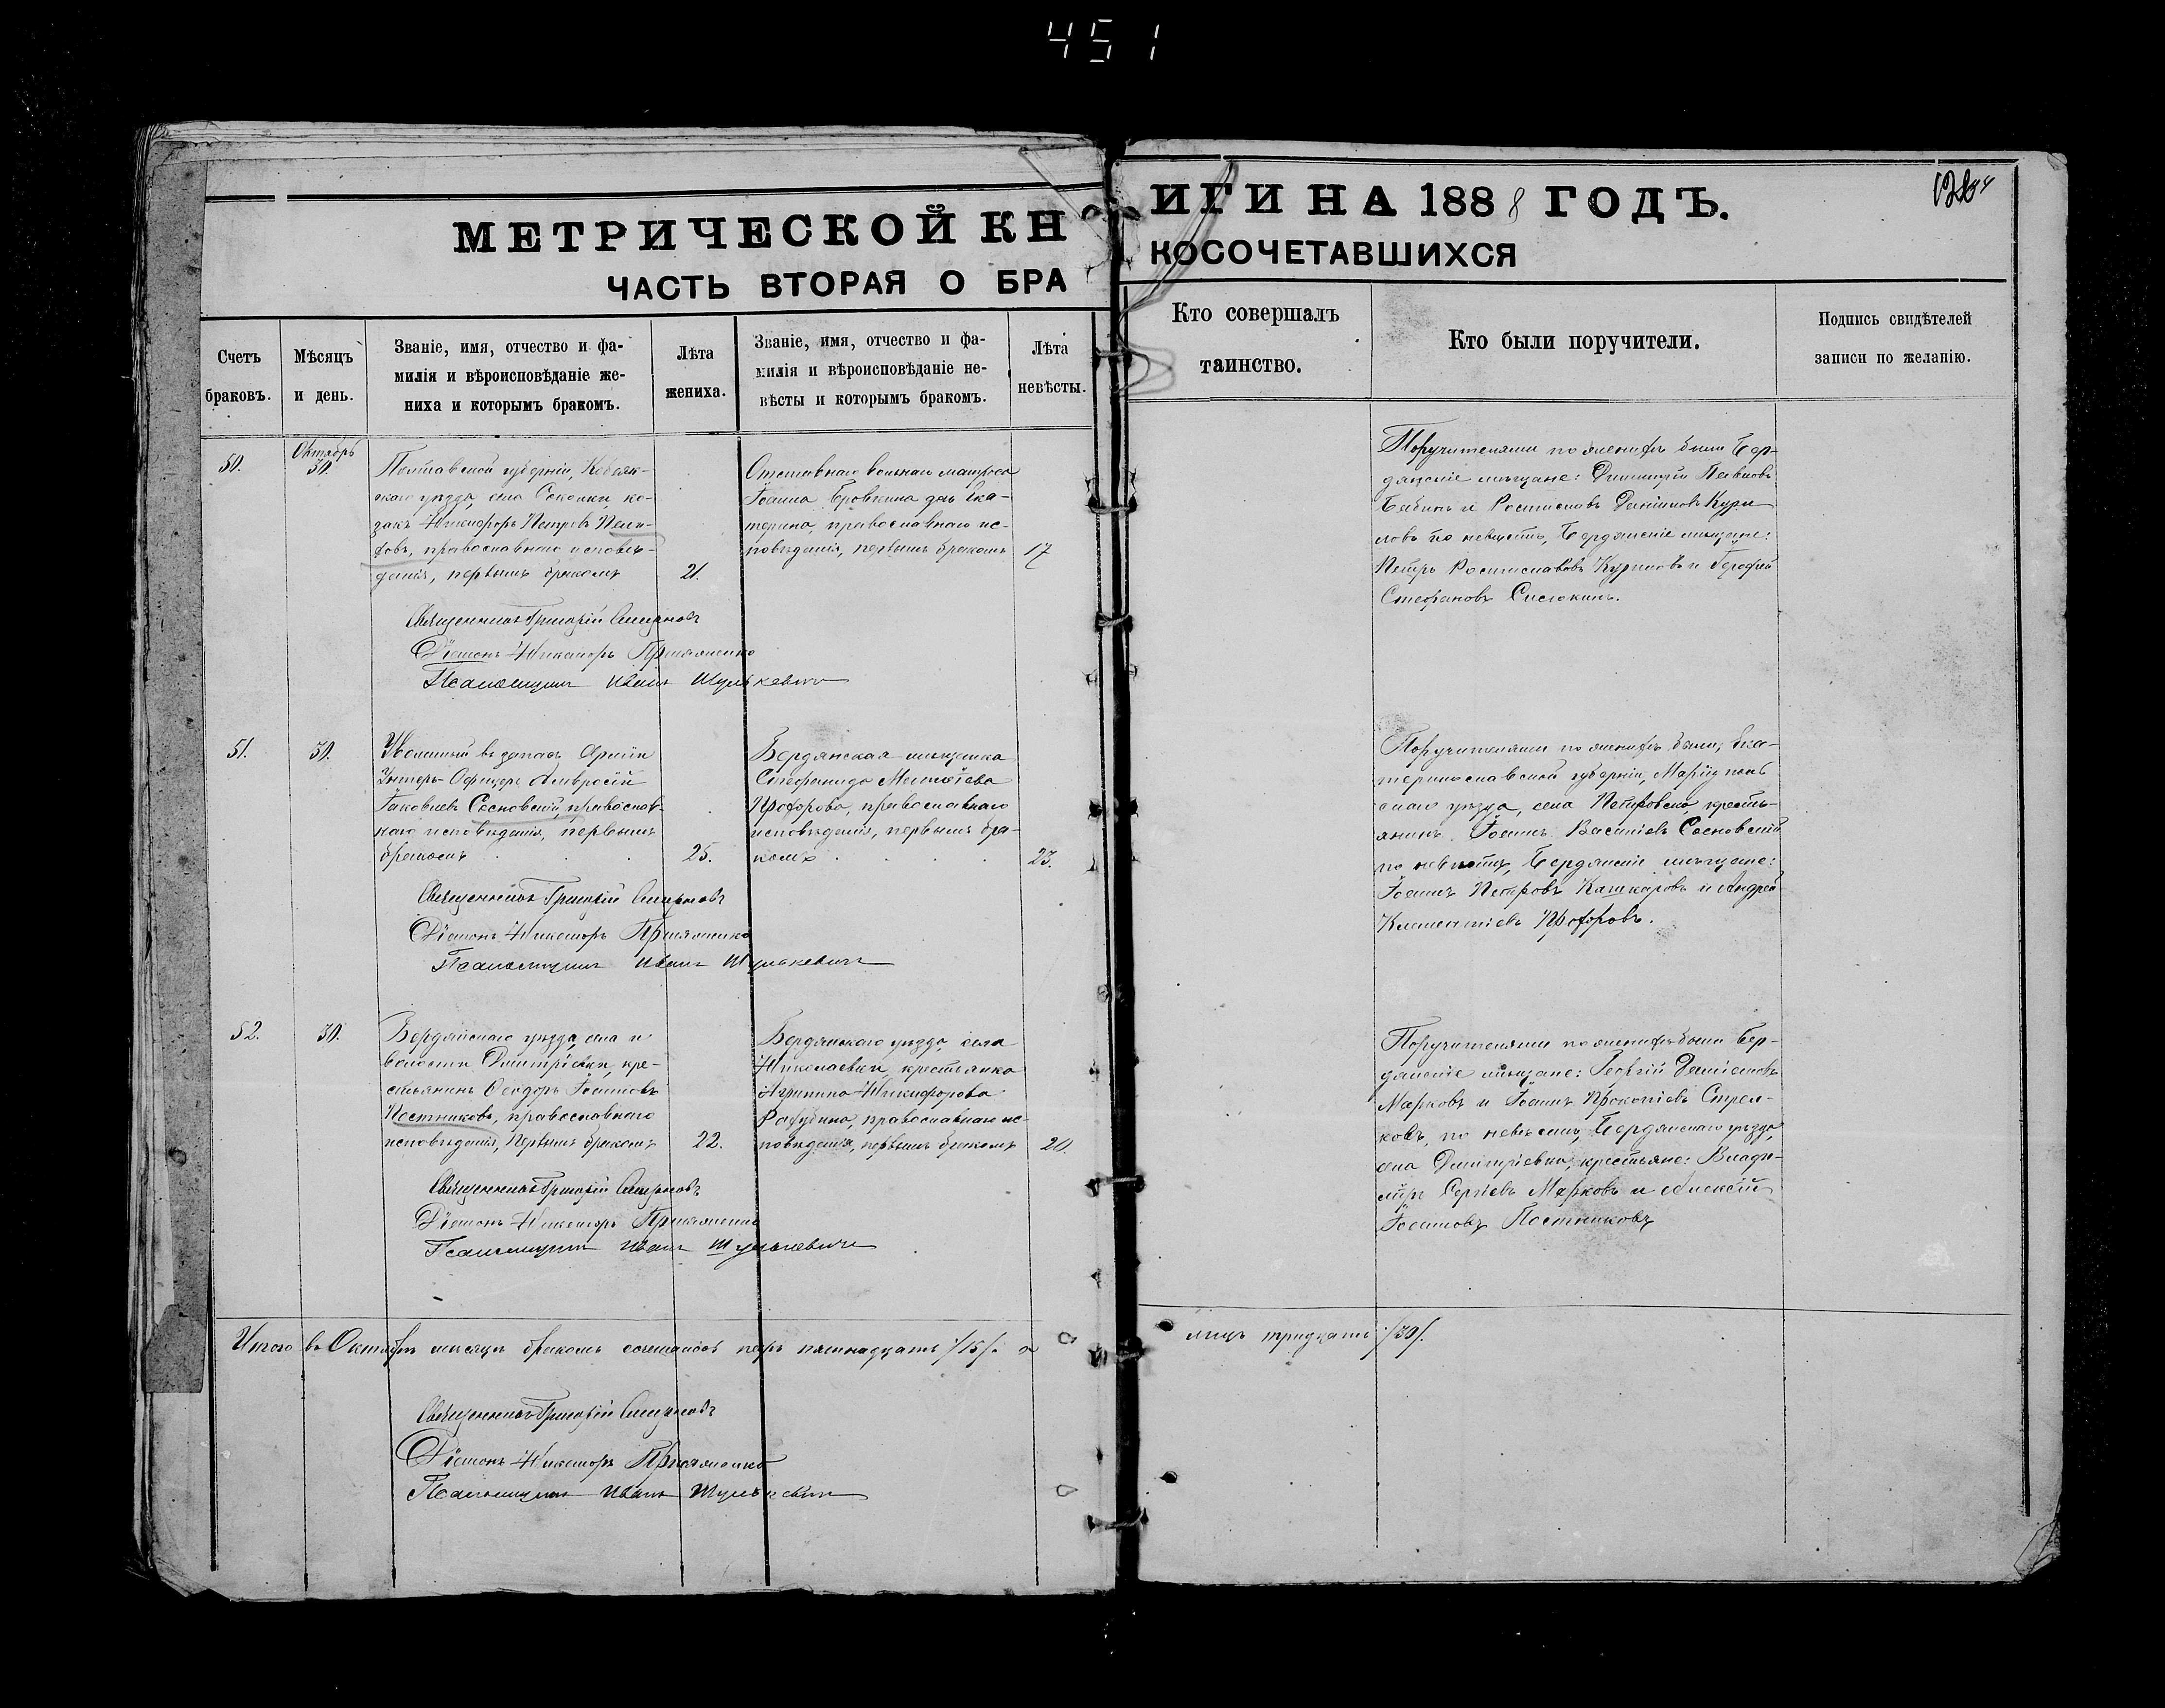 451
МЕТРИЧЕСКОЙ КН
ИГИ НА 1888 ГОДЪ.
ЧАСТЬ ВТОРАЯ О БРА
КОСОЧЕТАВШИХСЯ
Счетъ
браковъ.
Мѣсяцъ
и день.
Званіе, имя, отчество и фа-
милія и вѣроисповѣданіе же-
ниха и которымъ бракомъ.
Лѣта
жениха.
Званіе, имя, отчество и фа-
милія и вѣроисповѣданіе не-
вѣсты и которымъ бракомъ.
Лѣта
невѣсты.
Кто совершалъ
таинство.
Кто были поручители.
Подпись свидѣтелей
записи по желанію.
50.
Октябрь
30.
Полтавской губерніи, Кобеляк-
скаго уѣзда, села Соколки, ко-
закъ Никифоръ Петровъ
православнаго исповѣ-
данія, первымъ бракомъ
21.
Отставнаго вольнаго матроса
Іоанна Бровкина дчь Ека-
терина, православнаго ис-
повѣданія, первымъ бракомъ
17
Поручителями по женихѣ были Бер-
дянскіе мѣщане: Димитрій
Бабинъ и Ростиславъ Даниловъ Кури-
ловъ по невѣстѣ, Бердянскіе мѣщане:
Петръ Ростиславовъ Куриловъ и
Стефановъ
Священникъ Григорій Смирновъ
Діаконъ Никаноръ
Псаломщикъ Иванъ Шулькевичъ
51.
30.
Уволенный въ запасъ Арміи
Унтеръ-Офицеръ Амвросій
Іаковлевъ Сосновскій, православ-
наго исповѣданія, первымъ
бракомъ
25.
Бердянская мѣщанка
Стефанида
православнаго
исповѣданія, первымъ бра-
комъ
23.
Поручителями по женихѣ были; Ека-
теринославской губерніи, Маріуполь
скаго уѣзда, села Петровска, кресть-
янинъ Іоаннъ Василіевъ Сосновскій
по невѣстѣ, Бердянскіе мѣщане:
Іоаннъ Петровъ Кашкаровъ и Андрей
Климентіевъ
Священникъ Григорій Смирновъ
Діаконъ Никаноръ
Псаломщикъ Иванъ Шулькевичъ
52.
30.
Бердянскаго уѣзда, села и
волости Дмитріевки, кре-
стьянинъ Ѳеодоръ Іоанновъ
Постниковъ, православнаго
исповѣданія, первымъ бракомъ
22.
Бердянскаго уѣзда, села
Николаевки, крестьянка
Агрипина Никифорова
православнаго ис-
повѣданія, первымъ бракомъ
20.
Поручителями по женихѣ были Бер-
дянскіе мѣщане: Георгій Даміановъ
Марковъ и Іоаннъ Прокопіевъ Стрел-
ковъ, по невѣстѣ, Бердянскаго уѣзда,
села Дмитріевки, крестьяне: Влади-
міръ Сергіевъ Марковъ и Алексій
Іоанновъ Постниковъ
Священникъ Григорій Смирновъ
Діаконъ Никаноръ
Псаломщикъ Иванъ Шулькевичъ
Итого въ Октябрѣ мѣсяцѣ бракомъ сочеталось паръ пятнадцать /15/. а
лицъ тридцать /30/.
Священникъ Григорій Смирновъ
Діаконъ Никаноръ
Псаломщикъ Иванъ Шулькевичъ